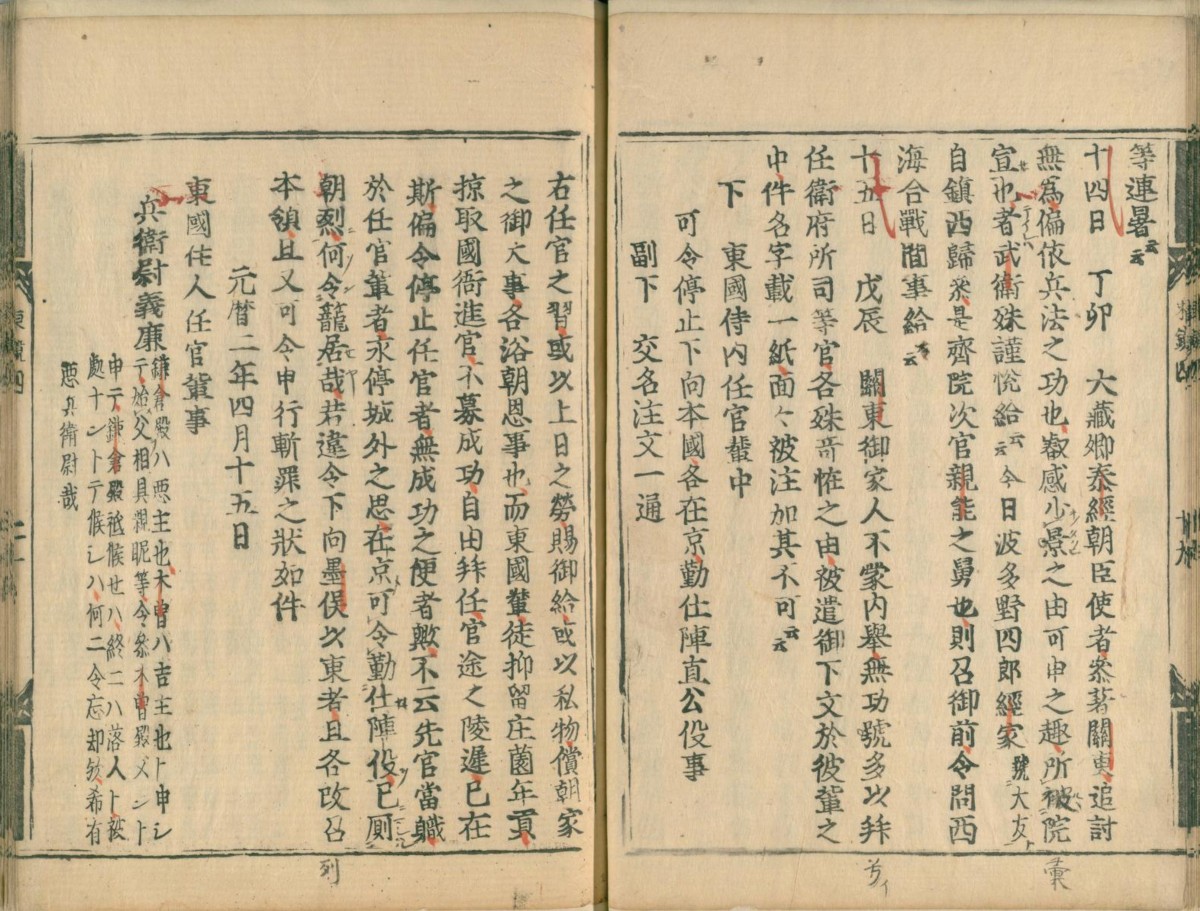 等連暑云云
十四日 丁卯 大藏卿泰經朝臣使者參著關東追討
無爲偏依兵法之功也叡感少景之由可申之趣所被院
宣也者武衛殊謹悅給云云今日波多野四郎經家號大友
自鎮西歸參是齊院次官親能之舅也則召御前令問西
海合戰間事給云云
十五日 戊辰 關東御家人不蒙內舉無功號多以拜
任衛府所司等官各殊奇恠之由被遣御下文於彼輩之
中件名字載一紙面々被注加其不可云云
下 東國侍內任官輩中
可令停止下向本國各在京勤仕陣直公役事
副下 交名注文一通
右任官之習或以上日之勞賜御給或以私物償朝家
之御大事各浴朝恩事也而東國輩徒抑留庄薗年貢
掠取國衙進官不募成功自由拜任官途之陵遲已在
斯偏令停止任官者無成功之便者歟不云先官當職
於任官輩者永停城外之思在京可令勤仕陣役已厠
朝烈何令籠居哉若違令下向墨俣以東者且各改召
本領且又可令申行斬罪之狀如件
元曆二年四月十五日
東國住人任官輩事
兵衛尉義廉
鎌倉殿ハ惡主也木曾ハ吉主也ト申シ
テ始父相具親昵等令參木曾殿メント
申テ鎌倉殿祗候セハ終ニハ落人ト被
處ナントテ候シハ何ニ令忘却歟希有
惡兵衛尉哉
列
彙